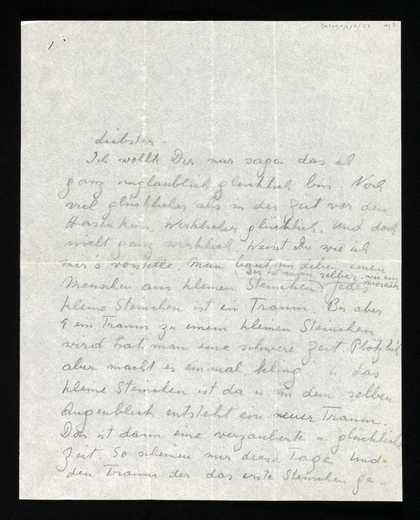 1
Liebster.
Ich wollte Dir nur sagen das ich
ganz unglaublich glücklich bin. Noch
viel glücklicher als in der Zeit vor dem
wirklicher glücklich. Und doch
nicht ganz wirklich. Weist Du wie ich
mir's vorstelle. Man baut im Leben einen
der ist man selber wie ein
Menschen aus kleinen Steinchen jedes
kleine Steinchen ist ein Traum. Bis aber
ein Traum zu einem kleinen Steinchen
wird hat man eine schwere Zeit. Plötzlich
aber macht es einmal kling u das
kleine Steinchen ist da u in dem selben
Augenblick entsteht ein neuer Traum.
Das ist dann eine verzauberte u glückliche
Zeit. So scheinen mir diese Tage. Und
den Traum der das erste Steinchen ge-